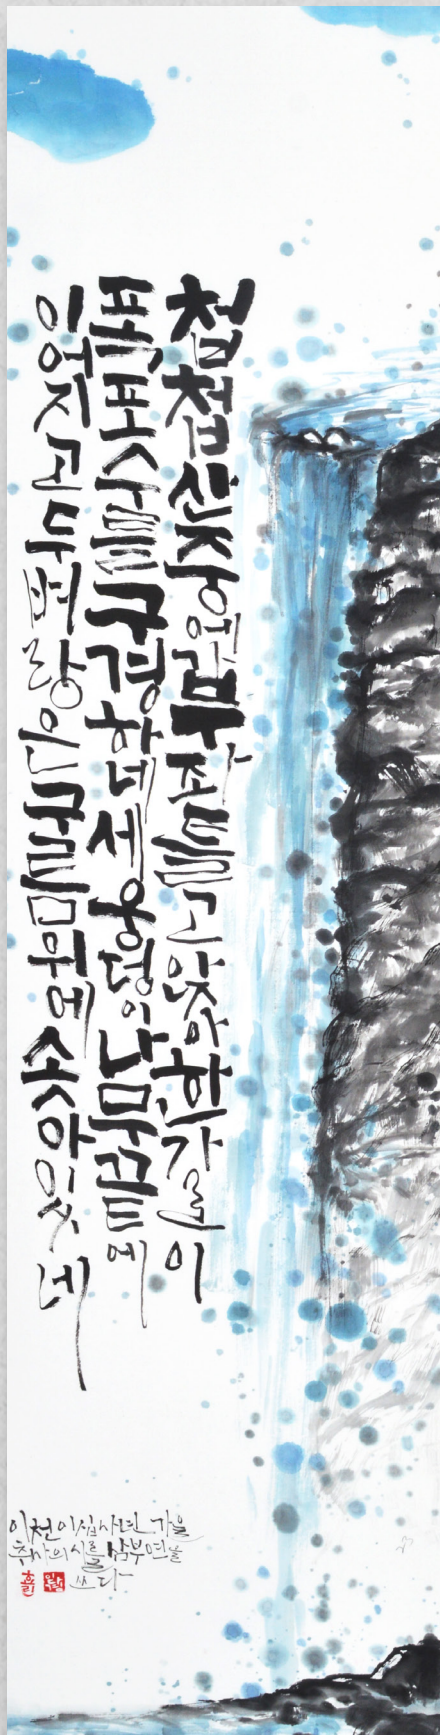 첩첩산중에 가부좌 틀고 앉아 한가로이
폭포수를 구경하네 세 웅덩이 나무 끝에
이어지고 두 벼랑은 구름 위에 솟아있네
이천이십사년 가을
추사의 시를 삼부연을
쓰다